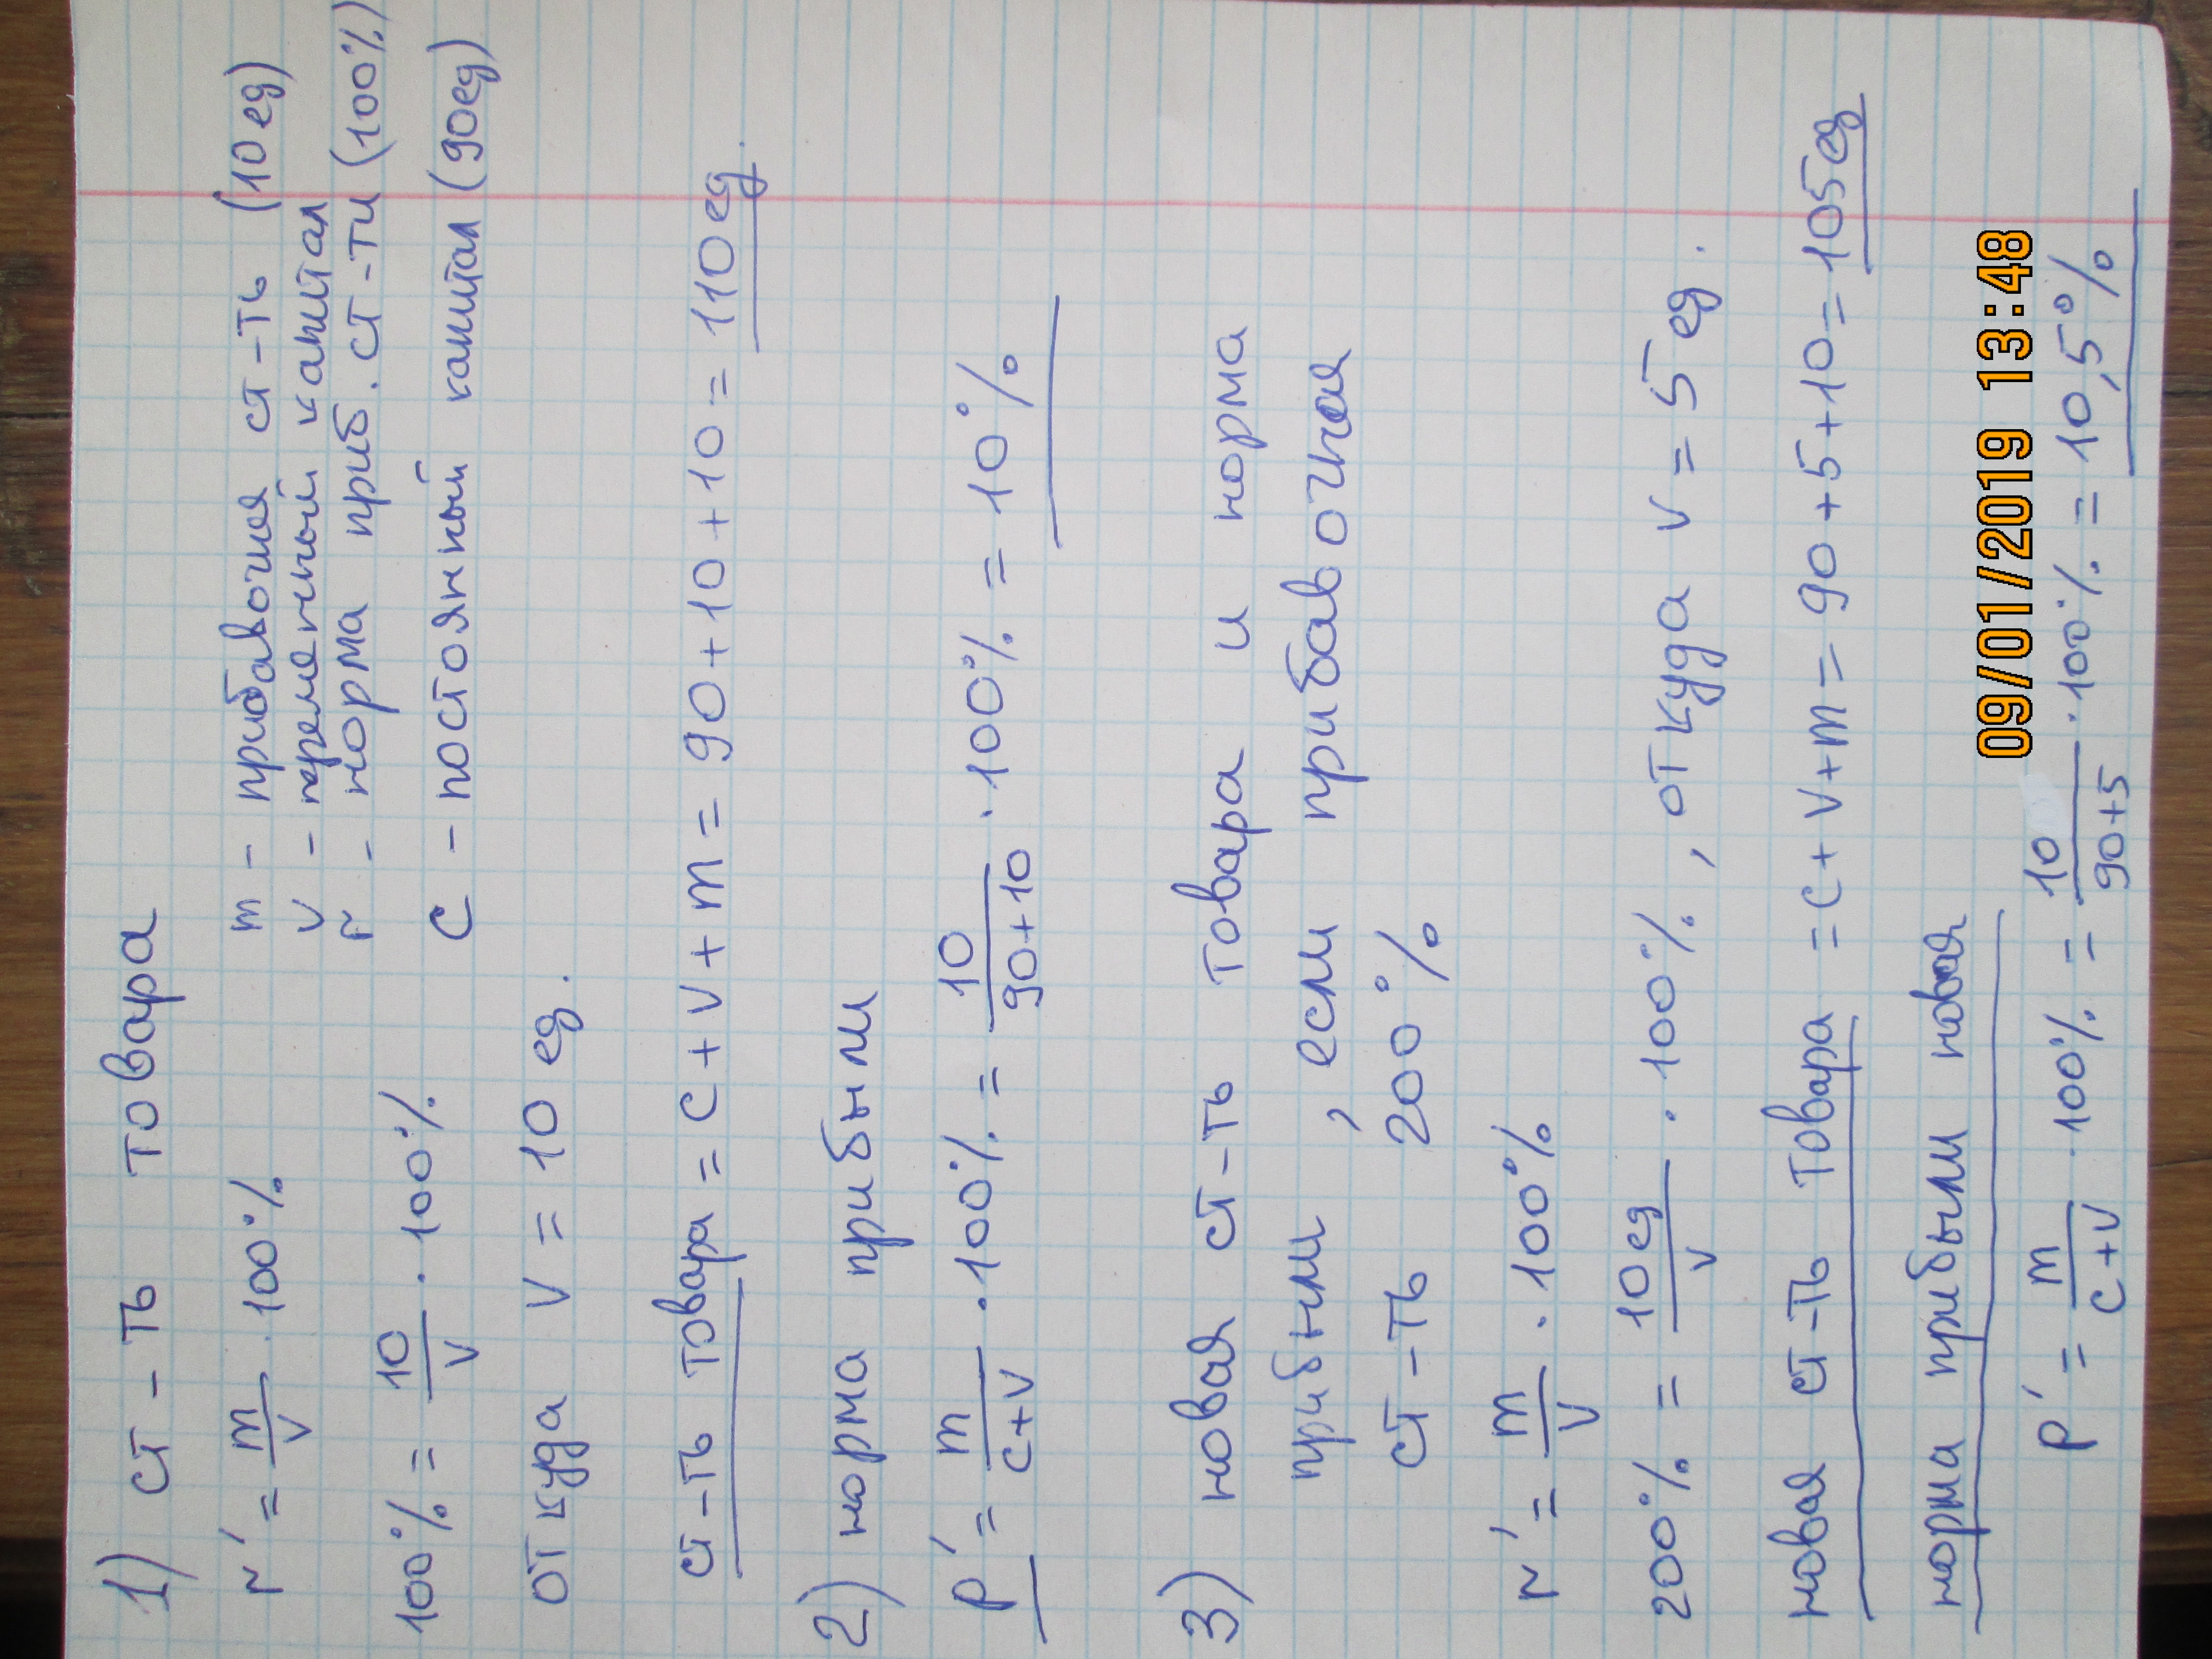 1) ст-ть товара
r' = m/v · 100%
m - прибавочная ст-ть (10 ед)
v - переменный капитал
r - норма приб. ст-ти (100%)
100% = 10/v · 100%
c - постоянный капитал (90ед)
откуда v = 10 ед.
ст-ть товара = c + v + m = 90 + 10 + 10 = 110 ед.
2) норма прибыли
p' = m/c+v · 100% = 10/90+10 · 100% = 10%
3) новая ст-ть товара и норма
прибыли, если прибавочная
ст-ть 200%
r' = m/v · 100%
200% = 10ед/v · 100%, откуда v = 5 ед.
новая ст-ть товара = c + v + m = 90 + 5 + 10 = 105ед
норма прибыли новая
p' = m/c+v · 100% = 10/90+5 · 100% = 10,5%
09/01/2019 13:48